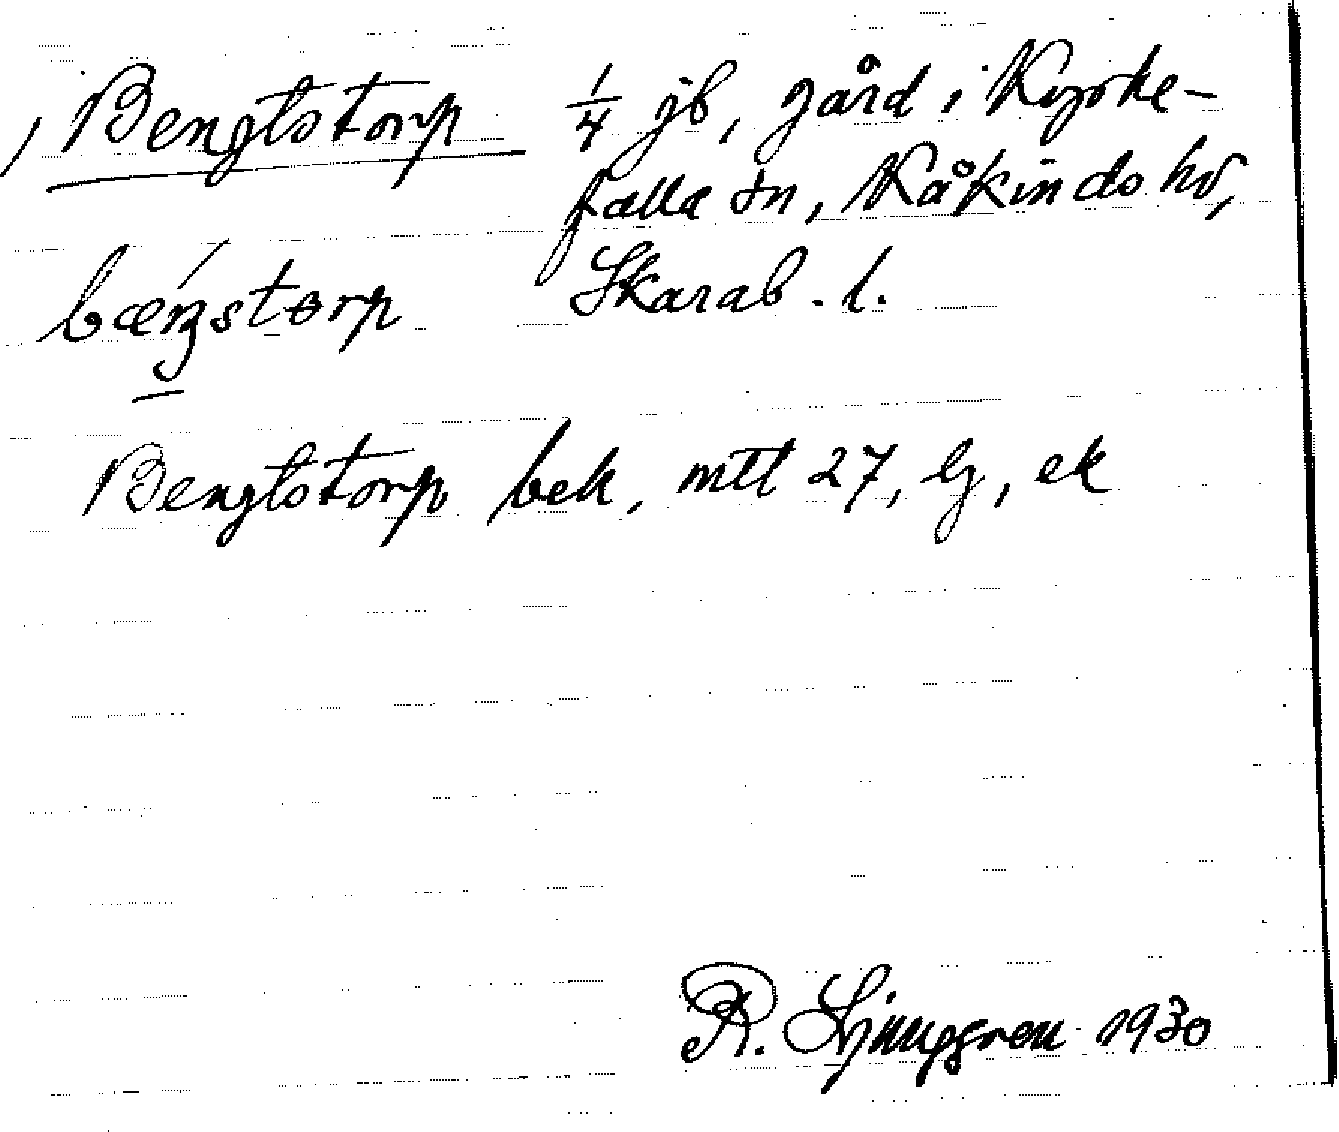 Bengtstorp 1/4 jb, gård i Kyrke-
falla sn, Kåkinds hd,
bæŋstorp Skarab. l.
Bengtstorp bek, mtl 27, lj, ek
R. Ljunggren 1930